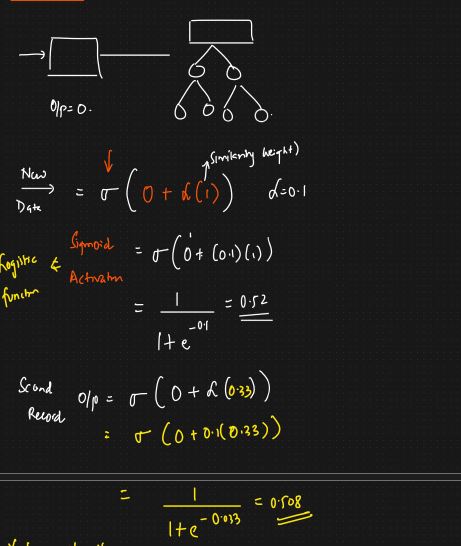 O/p = 0.
Similarity weight)
New
Data
= σ ( 0 + α (1) ) α = 0.1
Logistic
function
Sigmoid
Activation
= σ ( 0 + (0.1) (1) )
= 1 / 1 + e^-0.1 = 0.52
Second
Record
O/p = σ ( 0 + α (0.33) )
= σ ( 0 + 0.1 (0.33) )
= 1 / 1 + e^-0.033 = 0.508